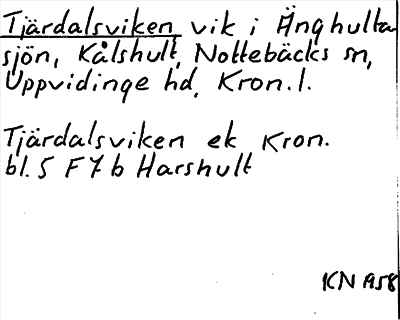 Tjärdalsviken vik i Änghulta
sjön, Kålshult, Nottebäcks sn,
Uppvidinge hd, Kron. l.
Tjärdalsviken ek Kron.
bl. 5 F 7 b Harshult
KN 1958